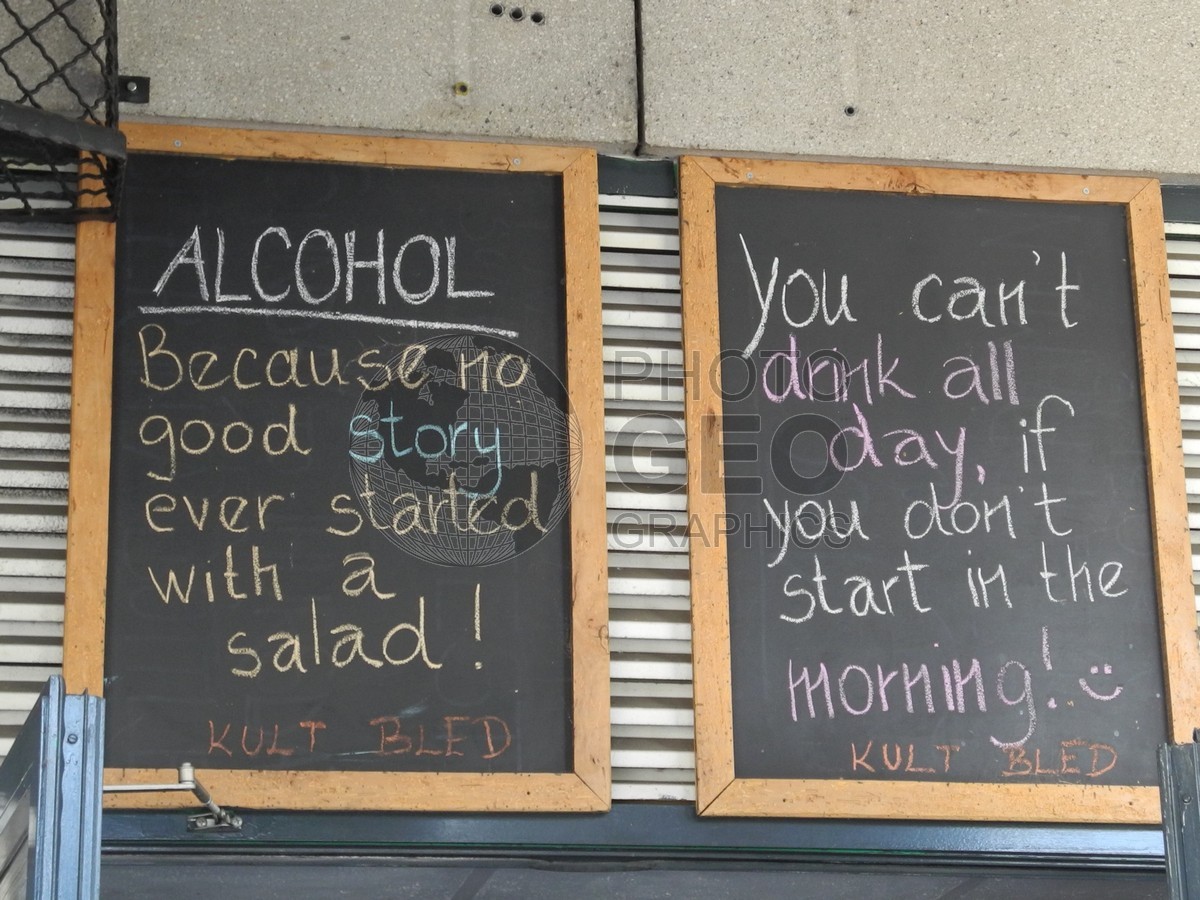 ALCOHOL
Because no
good story
ever started
with a
salad!
KULT BLED
You can't
drink all
day, if
you don't
start in the
morning!
KULT BLED
PHOTO
GEO
GRAPHICS